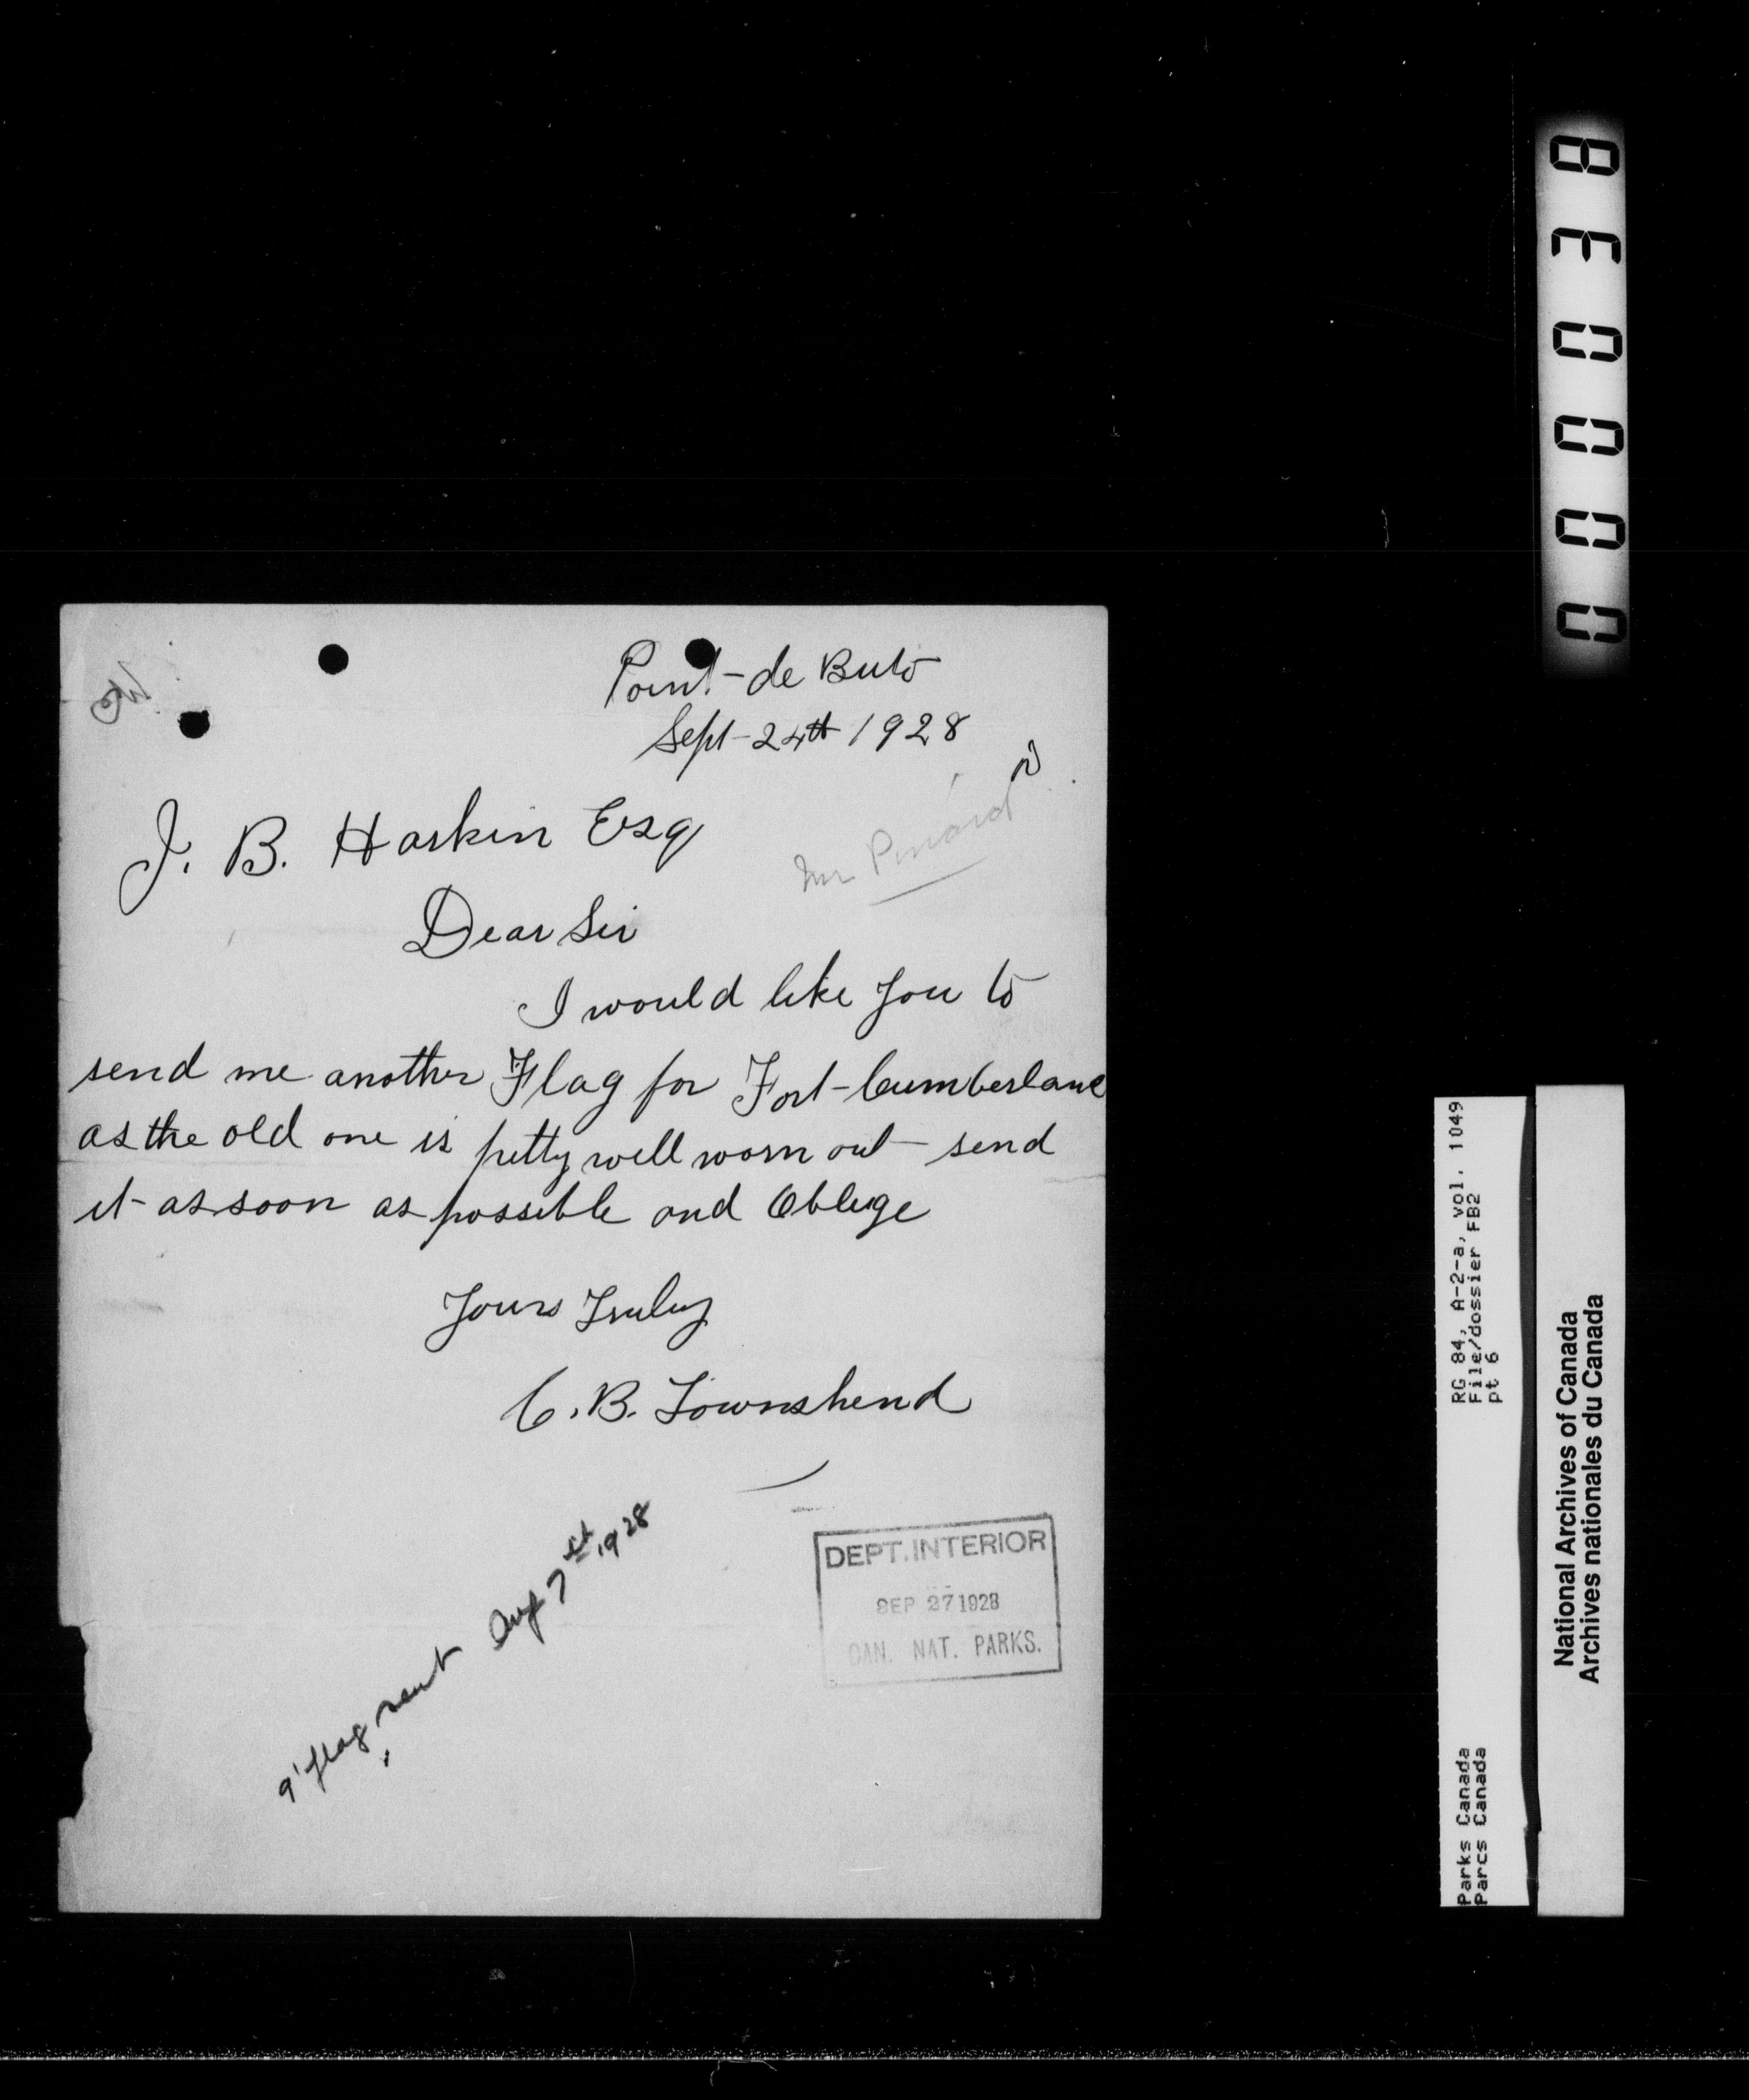 Point-de Bute
Sept-24th 1928
J. B. Harkin Esq
Mr Pinard
Dear Sir
I would like you to
send me another Flag for Fort-Cumberland
as the old one is pretty well worn out - send
it as soon as possible and Oblige
Yours Truly
C. B. Townshend
9' flag sent Aug 7th 1928
DEPT. INTERIOR
SEP 27 1928
CAN. NAT. PARKS.
000038
RG 84, A-2-a, vol. 1049
File/dossier FB2
pt 6
Parks Canada
Parcs Canada
National Archives of Canada
Archives nationales du Canada